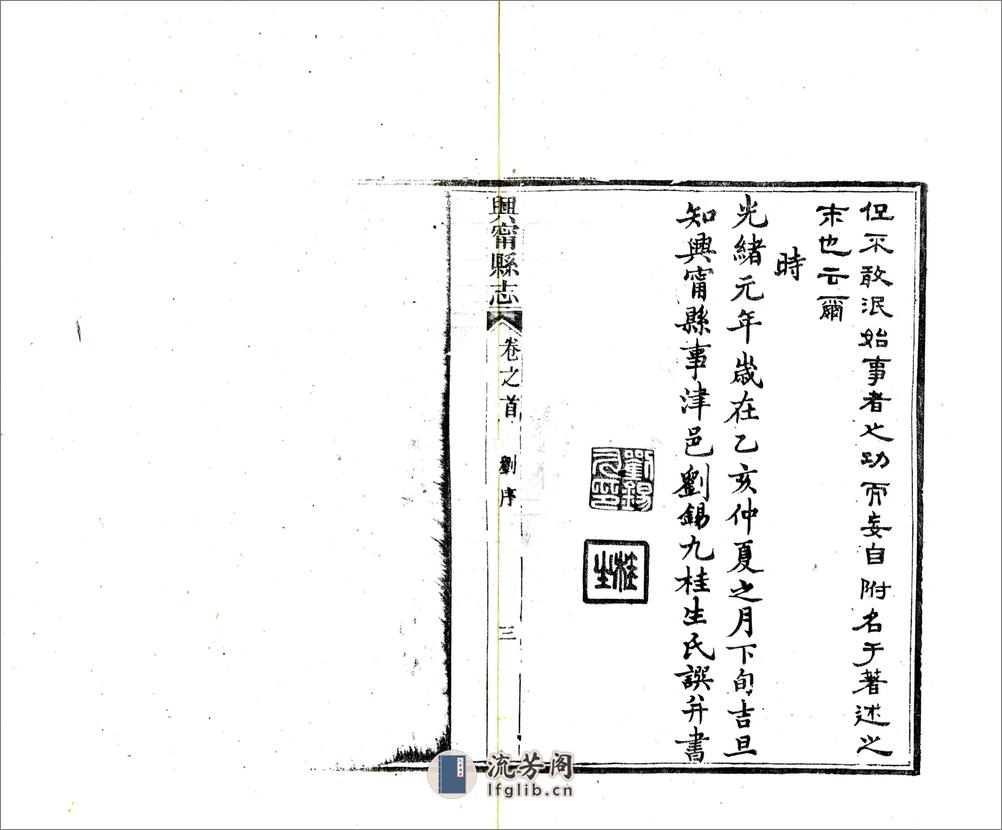 但不敢泯始事者之功而妄自附名于著述之
末也云爾
時
光緒元年歲在乙亥仲夏之月下旬吉旦
知興甯縣事津邑劉錫九桂生氏譔并書
劉錫九印
桂生
興甯縣志
卷之首
劉序
三
流芳阁
lfglib.cn